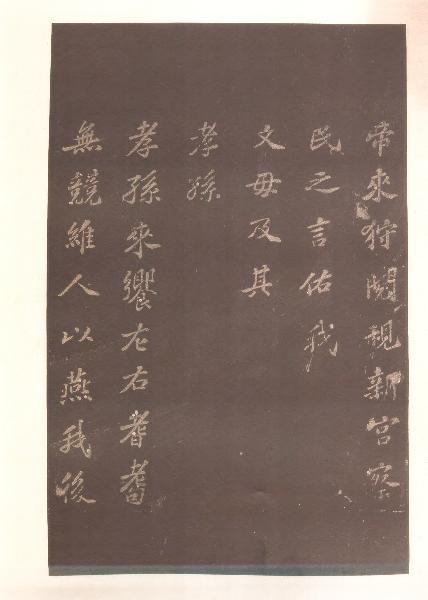 帝來狩閱視新宮察
民之言佑我
文母及其
孝孫
孝孫來饗左右耆耇
無競維人以燕我後